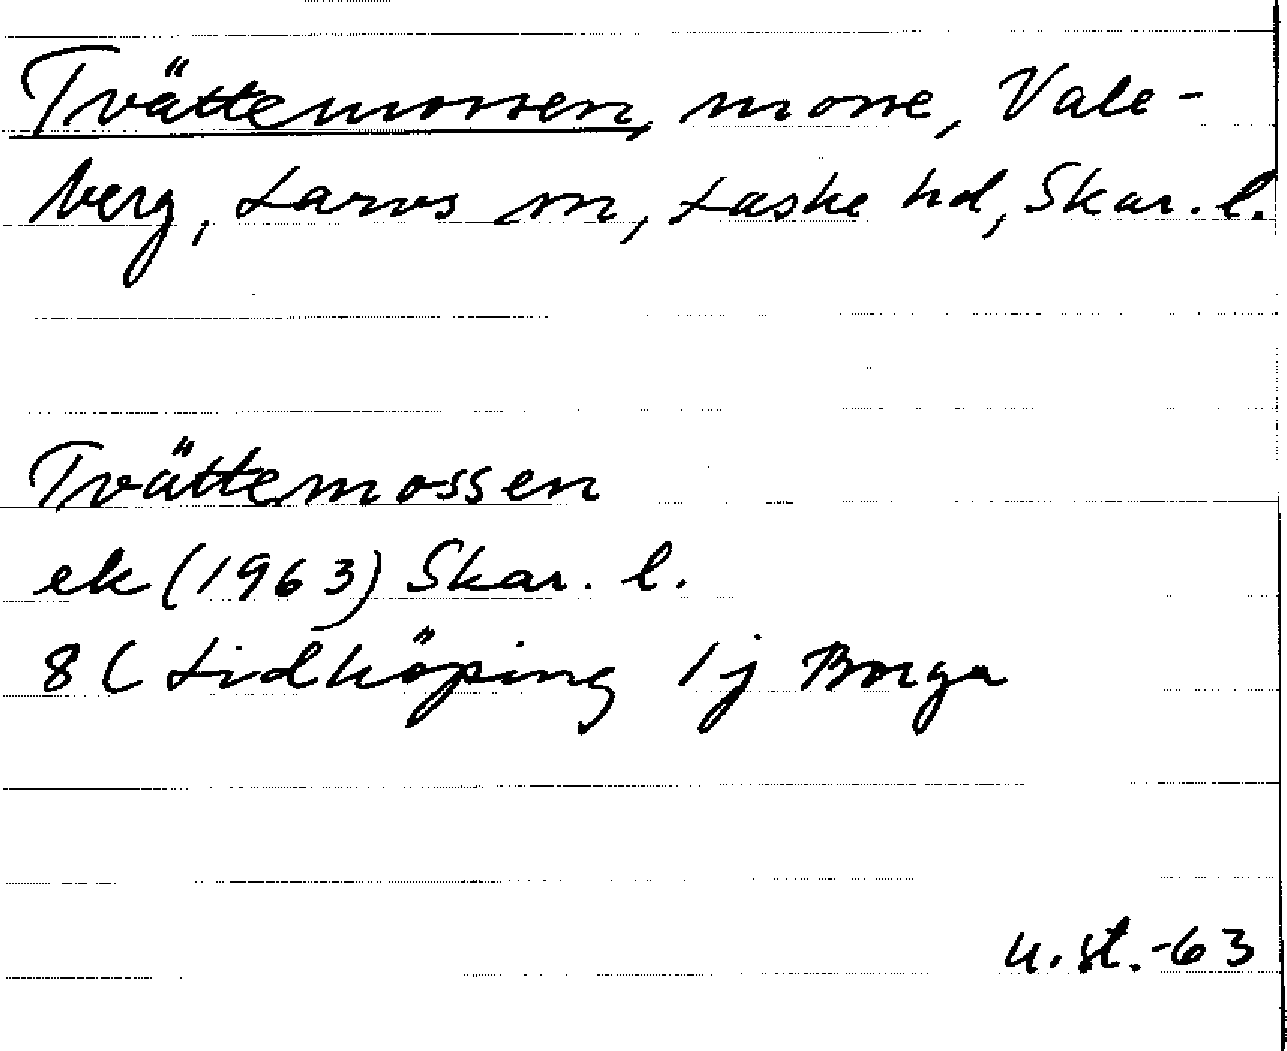 Tvättemossen, mosse, Vale-
berg, Larvs sn, Laske hd, Skar. l.
Tvättemossen
ek (1963) Skar. l.
8C Lidköping 1j Borga
u. st. -63